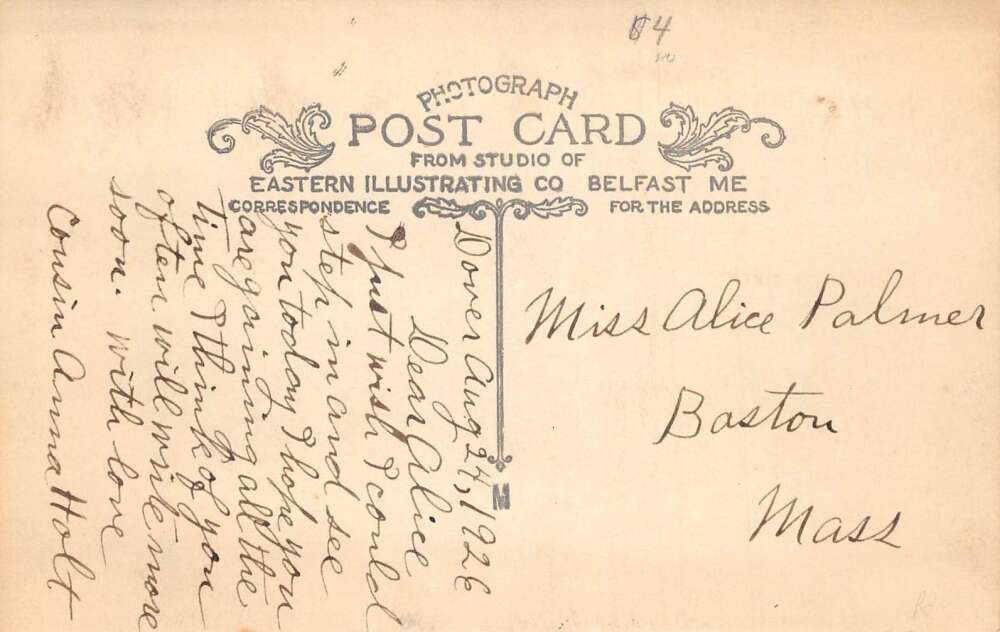 84
PHOTOGRAPH
POST CARD
FROM STUDIO OF
EASTERN ILLUSTRATING CO BELFAST ME
CORRESPONDENCE
FOR THE ADDRESS
Dover Aug 24, 1926
Dear Alice
I just wish I could
step in and see
you today I hope you
are gaining all the
time I think of you
often will write more
soon. with love
Cousin Anna Holt
M
Miss Alice Palmer
Boston
Mass